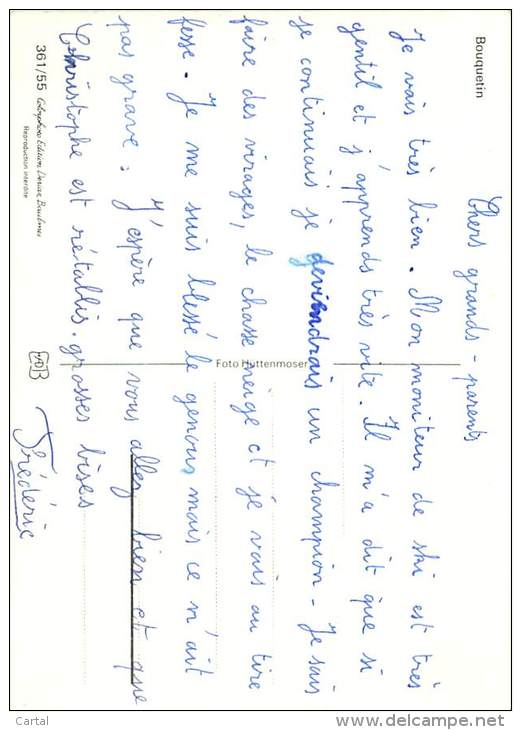 Bouquetin
Chers grands-parents
Je vais très bien. Mon moniteur de ski est très
gentil et j'apprends très vite. Il m'a dit que si
je continuais je deviendrais un champion - Je sais
faire des virages, le chasse neige et je vais au tire
fesse. Je me suis blessé le genous mais ce n'ait
pas grave. J'espère que vous allez bien et que
Christophe est rétablis. grosses bises
Frédéric
Foto Hüttenmoser
361/55 Colorphoto Edition Deriaz, Baulmes
Reproduction interdite
Cartal
www.delcampe.net